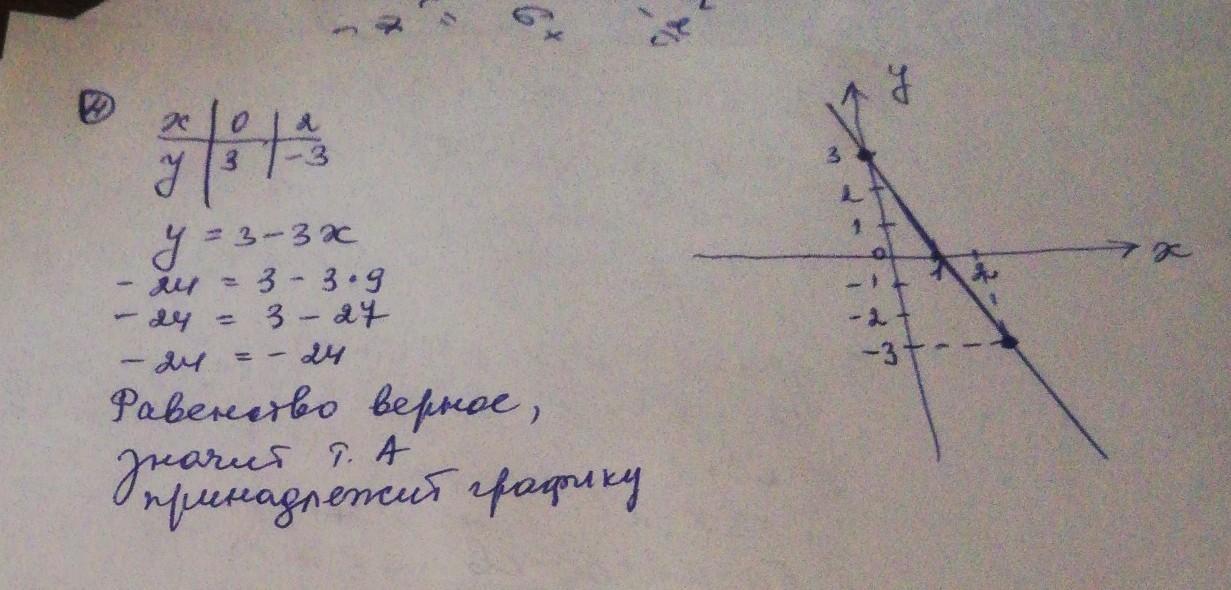 ④
x | 0 | 2
y | 3 | -3
y = 3 - 3x
- 24 = 3 - 3 · 9
- 24 = 3 - 27
- 24 = - 24
Равенство верное,
значит т. А
принадлежит графику
y
3
2
1
0
1
2
x
-1
-2
-3